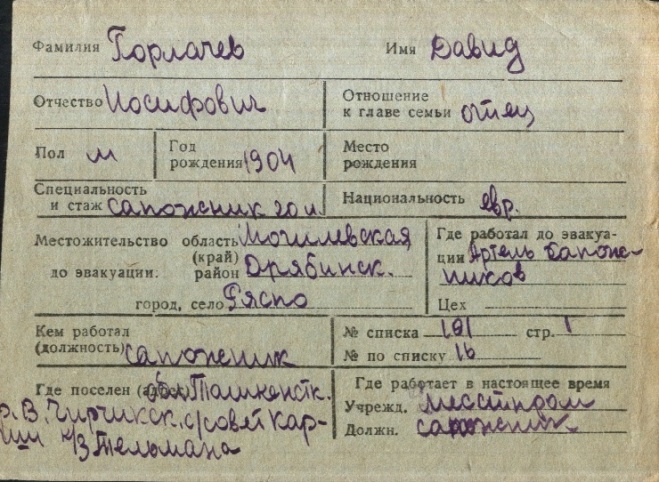 Фамилия Горлачев Имя Давид
Отчество Иосифович Отношение к главе семьи отец
Пол м Год рождения 1904 Место рождения
Специальность и стаж сапожник 20 л. Национальность евр.
Местожительство область Могилевская
(край)
до эвакуации: район Дрябинск.
город, село Рясно
Где работал до эвакуа-
ции Артель Сапож-
ников
Цех
Кем работал
(должность) сапожник
№ списка 191 стр. 1
№ по списку 16
Где поселен Обл. Ташкентск.
р. В. Чирчикск. с/совет Кар-
к/з Тельмана
Где работает в настоящее время
Учрежд. Местпром
Должн. сапожник